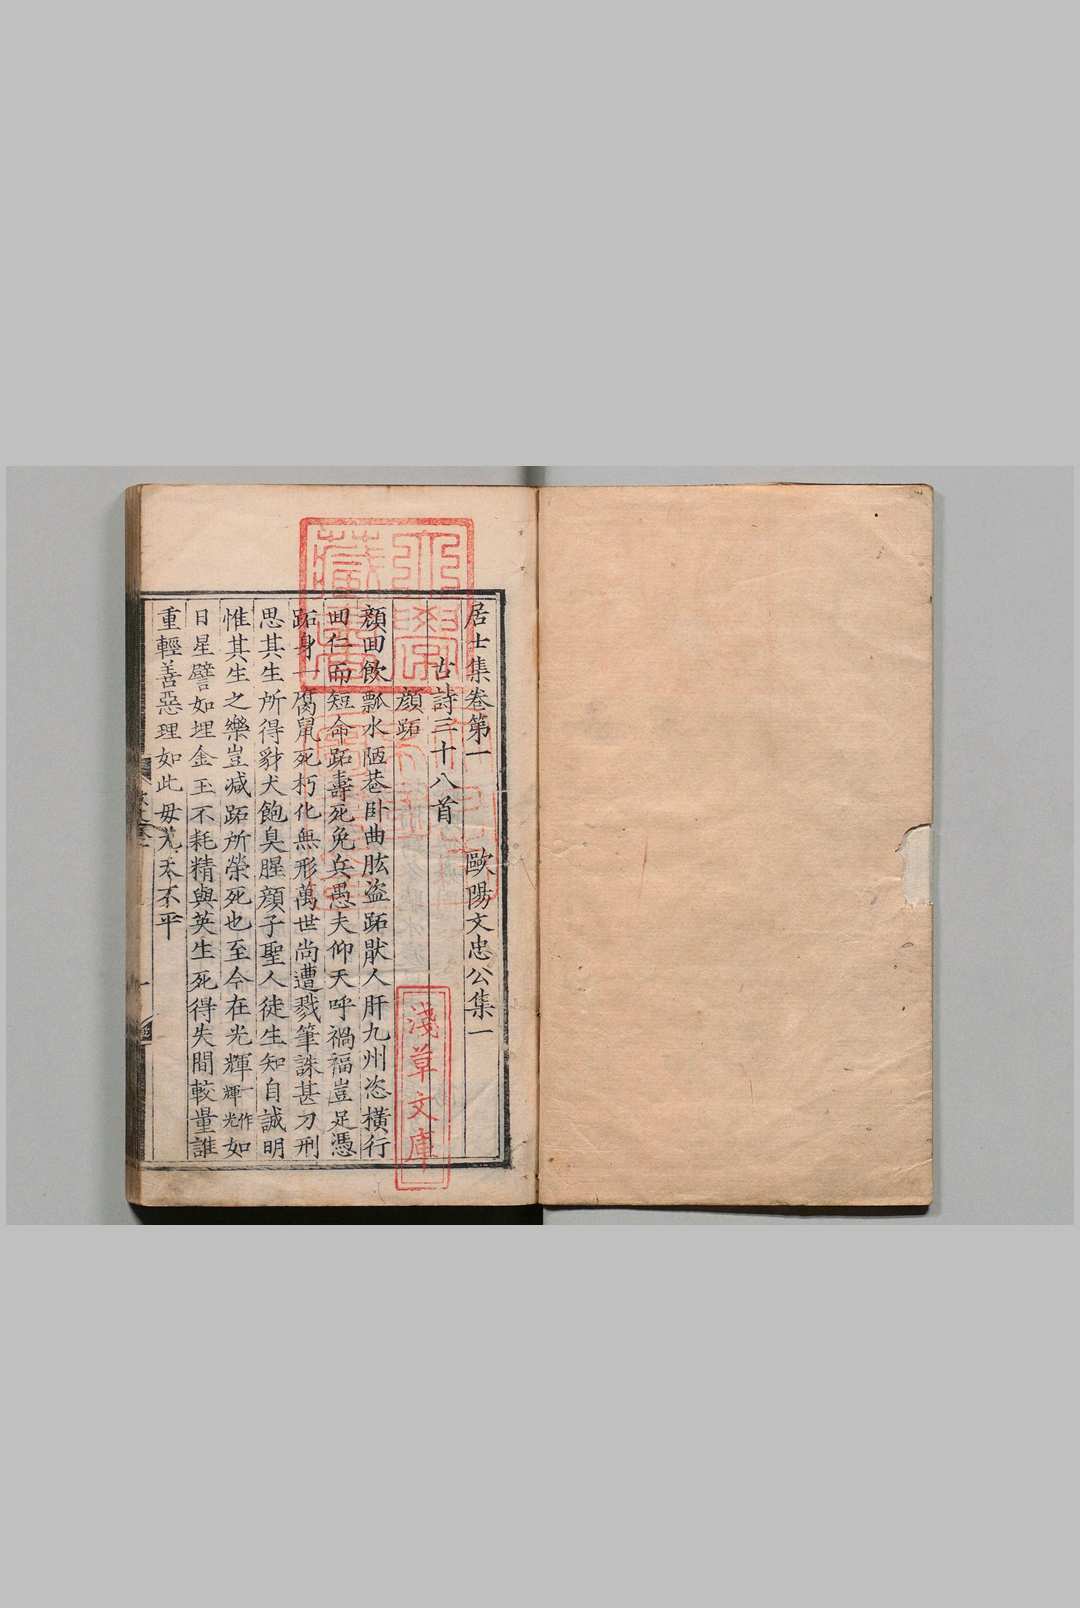 居士集卷第一 歐陽文忠公集一
古詩三十八首
顔跖
顔回飲瓢水陋巷卧曲肱盜跖猒人肝九州恣橫行
回仁而短命跖壽死免兵愚夫仰天呼禍福豈足憑
跖身一腐鼠死朽化無形萬世尚遭戮筆誅甚刀刑
思其生所得豺犬飽臭腥顔子聖人徒生知自誠明
惟其生之樂豈减跖所榮死也至今在光輝一作輝光如
日星譬如埋金玉不耗精與英生死得失間較量誰
重輕善惡理如此毋尤天不平
淺草文庫